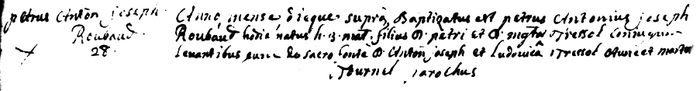 petrus Anton joseph Anno, mense, dieque supra, Baptizatus est petrus Antonius joseph
Roubaud Roubaud hodie natus h. 3. mat. filius D. petri et D. Tressol
28. Levantibus eum de sacro fonte D. Anton joseph et Ludovica Tressol
Tournel parochus